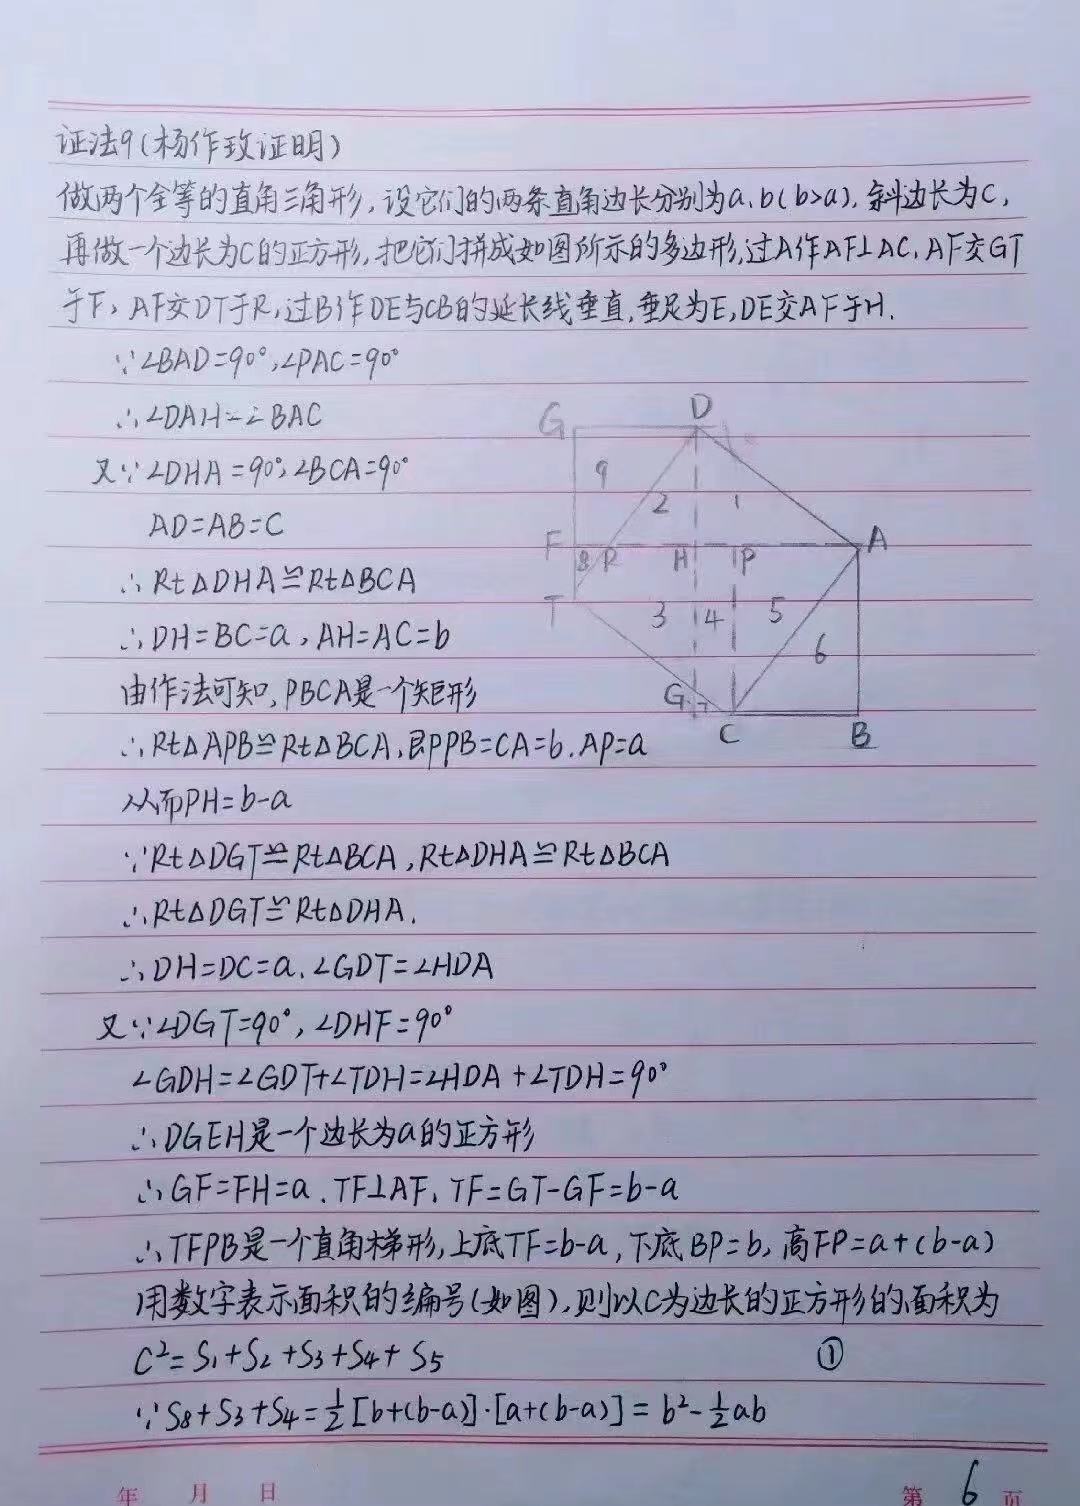 证法9(杨作玫证明)
做两个全等的直角三角形,设它们的两条直角边长分别为a、b(b>a),斜边长为C,
再做一个边长为C的正方形,把它们拼成如图所示的多边形,过A作AF⊥AC,AF交GT
于F,AF交DT于R,过B作DE与CB的延长线垂直,垂足为E,DE交AF于H.
∵∠BAD=90°,∠PAC=90°
∴∠DAH=∠BAC
又∵∠DHA=90°,∠BCA=90°
AD=AB=C
∴Rt△DHA≌Rt△BCA
∴DH=BC=a,AH=AC=b
由作法可知,PBCA是一个矩形
∴Rt△APB≌Rt△BCA,即PPB=CA=b.AP=a
从而PH=b-a
∵Rt△DGT≌Rt△BCA,Rt△DHA≌Rt△BCA
∴Rt△DGT≌Rt△DHA.
∴DH=DC=a.∠GDT=∠HDA
又∵∠DGT=90°,∠DHF=90°
∠GDH=∠GDT+∠TDH=∠HDA+∠TDH=90°
∴DGEH是一个边长为a的正方形
∴GF=FH=a.TF⊥AF,TF=GT-GF=b-a
∴TFPB是一个直角梯形,上底TF=b-a,下底BP=b,高FP=a+(b-a)
用数字表示面积的编号(如图),则以C为边长的正方形的面积为
C²=S₁+S₂+S₃+S₄+S₅ ①
∵S₈+S₃+S₄=½[b+(b-a)]·[a+(b-a)]=b²-½ab
G D
9 2 1
F 8 R H P A
T 3 4 5
6
G 7 C B
年 月 日 第 6 页